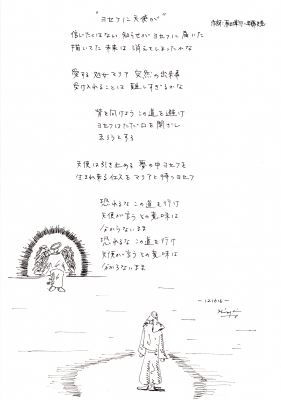 "ヨセフに天使が"
信じたくはない 知らせが ヨセフに 届いた
描いてた 未来は 消えてしまったかな
愛する 処女マリア 突然の出来事
受け入れることは 難しすぎるかな
背を向けよう この道を避け
ヨセフはただ 口を閉ざし
去ろうとする
天使は引き止める 夢の中 ヨセフを
生まれ来る イエスを マリアと待つ ヨセフ
恐れるな この道を行け
天使が言う その意味は
分からないまま
恐れるな この道を行け
天使が言う その意味は
分からないまま